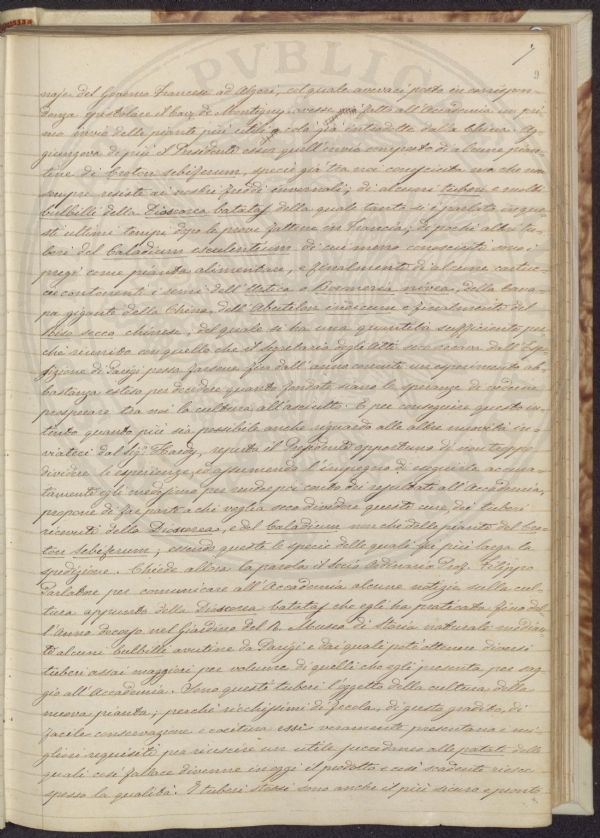 7
9
naje del Governo Francese ad Algeri, col quale avevaci posto in corrispon-
denza epistolare il Bar. de Montigny avesse già fatto all'Accademia un pri
mo invio delle piante più utili colà già introdotte dalla China. Ag-
giungeva di più il Presidente esser quell'invio composto di alcune pian-
tine di Croton sebiferum, specie già tra noi conosciuta ma che non
sempre resiste ai nostri freddi invernali; di alcuni tuberi e molti
bulbilli della Dioscorea batatas della quale tanto si è parlato in que-
sti ultimi tempi dopo le prove fattene in Francia; di pochi altri tu-
beri del Caladium esculentum di cui meno conosciuti sono i
pregi come pianta alimentare, e finalmente di alcune cartuc-
ce contenenti i semi dell'Urtica o Boemeria nivea, della cana-
pa gigante della China, dell'Abutilon indicum e finalmente del
Riso secco chinese, del quale si ha una quantità sufficiente per
chè riunito con quello che il Segretario degli Atti seco recava dall'Espo
sizione di Parigi possa farsene fin dall'anno venturo un esperimento ab-
bastanza esteso per decidere quanto fondate siano le speranze di vedere
prosperare tra noi la cultura all'asciutto. E per conseguire questo in-
tento quanto più sia possibile anche riguardo alle altre novità in-
viateci dal Sig. Hardy, reputa il Presidente opportuno di non troppo
dividere le esperienze, ed assumendo l'impegno di eseguirle accura-
tamente egli medesimo per render poi conto dei resultati all'Accademia,
propone di far parte a chi voglia seco dividere queste cure, dei tuberi
ricevuti della Dioscorea, e del Caladium non che delle piante del Cro-
ton Sebiferum, essendo queste le specie delle quali fu più larga la
spedizione. Chiede allora la parola il Socio Ordinario Prof. Filippo
Parlatore per comunicare all'Accademia alcune notizie sulla cul-
tura appunto della Dioscorea batatas che egli ha praticata fino dal-
l'Anno decorso nel Giardino del R. Museo di Storia naturale median-
te alcuni bulbilli avutine da Parigi e dai quali potè ottenere diversi
tuberi assai maggiori per volume di quelli che egli presenta per sag-
gio all'Accademia. Sono questi tuberi l'oggetto della cultura della
nuova pianta; perchè ricchissimi di fecola, di gusto gradito, di
facile conservazione e cocitura essi veramente presentano i mi-
gliori requisiti per riuscire un utile succedaneo alle patate delle
quali così fallace divenne in oggi il prodotto e così scadente riesce
spesso la qualità. I tuberi stessi sono anche il più sicuro e pronto